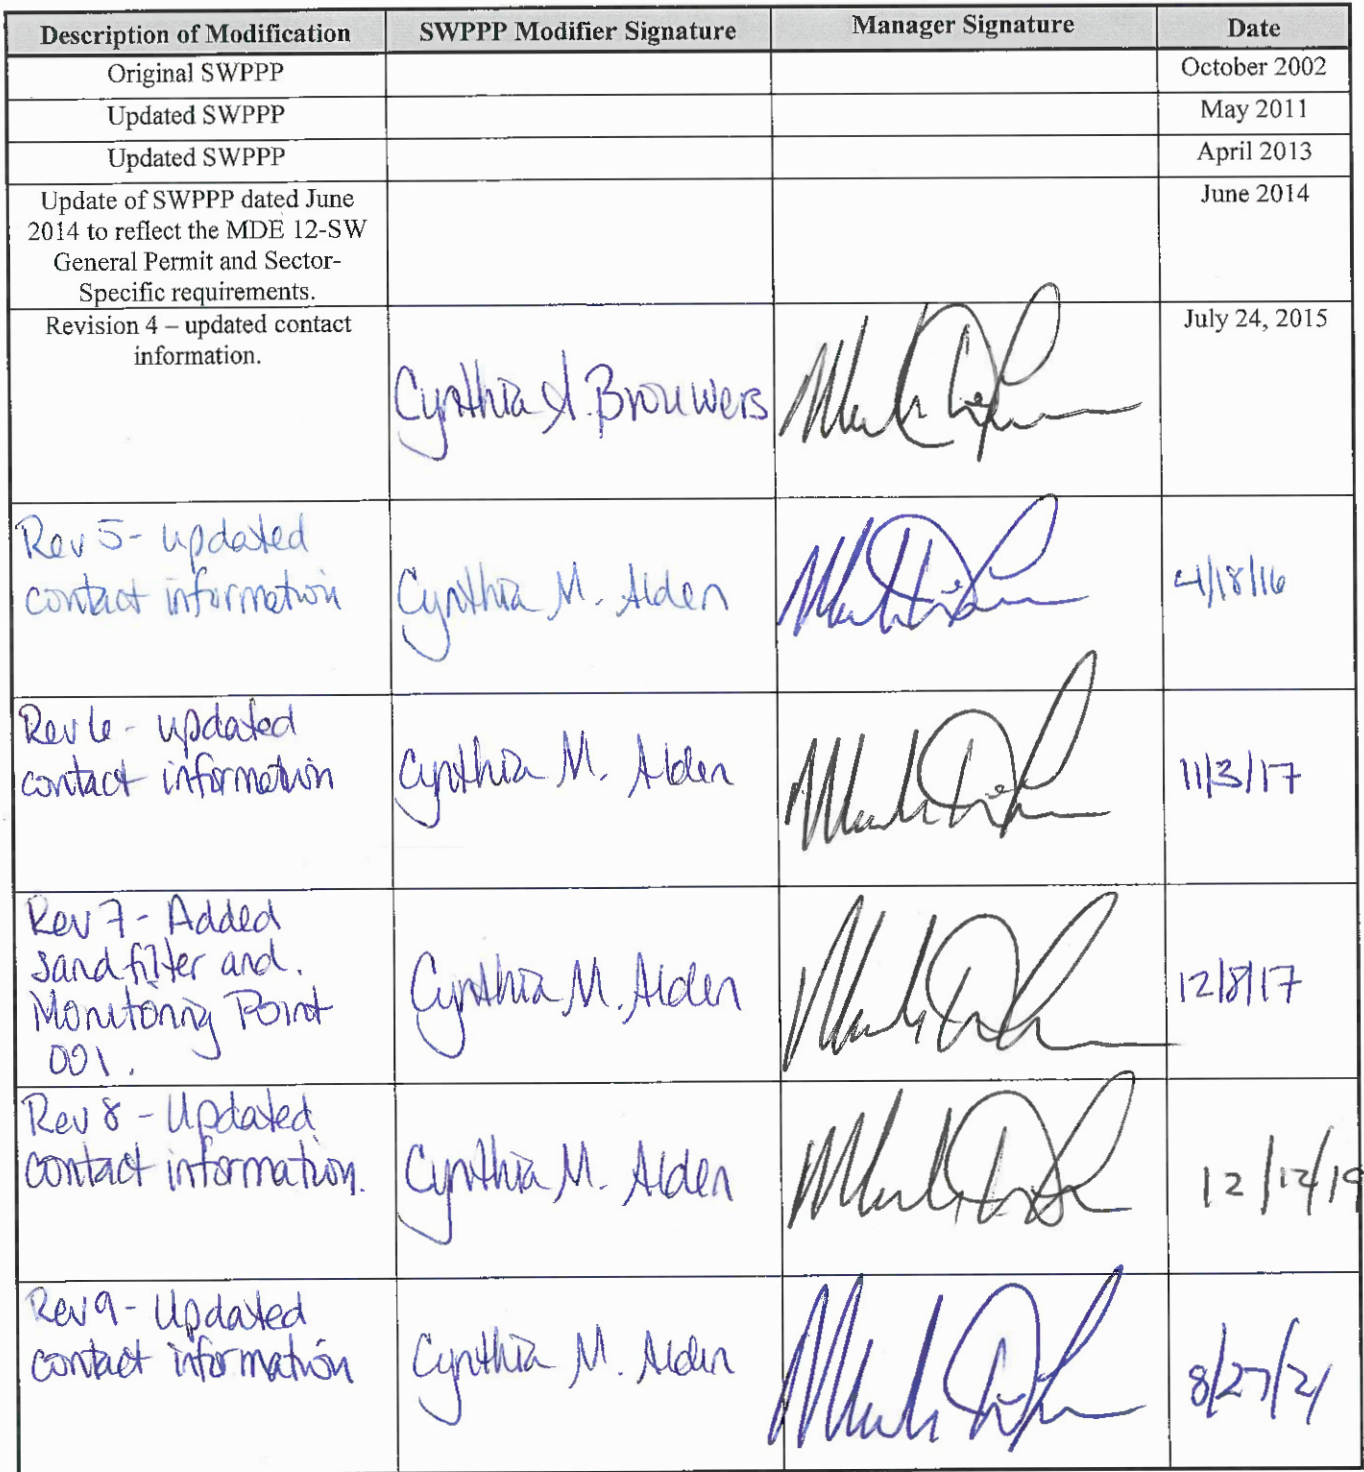 Description of Modification SWPPP Modifier Signature Manager Signature Date
Original SWPPP October 2002
Updated SWPPP May 2011
Updated SWPPP April 2013
Update of SWPPP dated June June 2014
2014 to reflect the MDE 12-SW
General Permit and Sector-
Specific requirements.
Revision 4 – updated contact July 24, 2015
information.
Cynthia A. Brouwers
Rev 5- updated
contact information Cynthia M. Alden 4/18/16
Rev 6- updated
contact information Cynthia M. Alden 11/3/17
Rev 7- Added
sand filter and.
Monitoring Point Cynthia M. Alden 12/8/17
001.
Rev 8 - Updated
contact information. Cynthia M. Alden 12/12/19
Rev 9- Updated
contact information Cynthia M. Alden 8/27/21